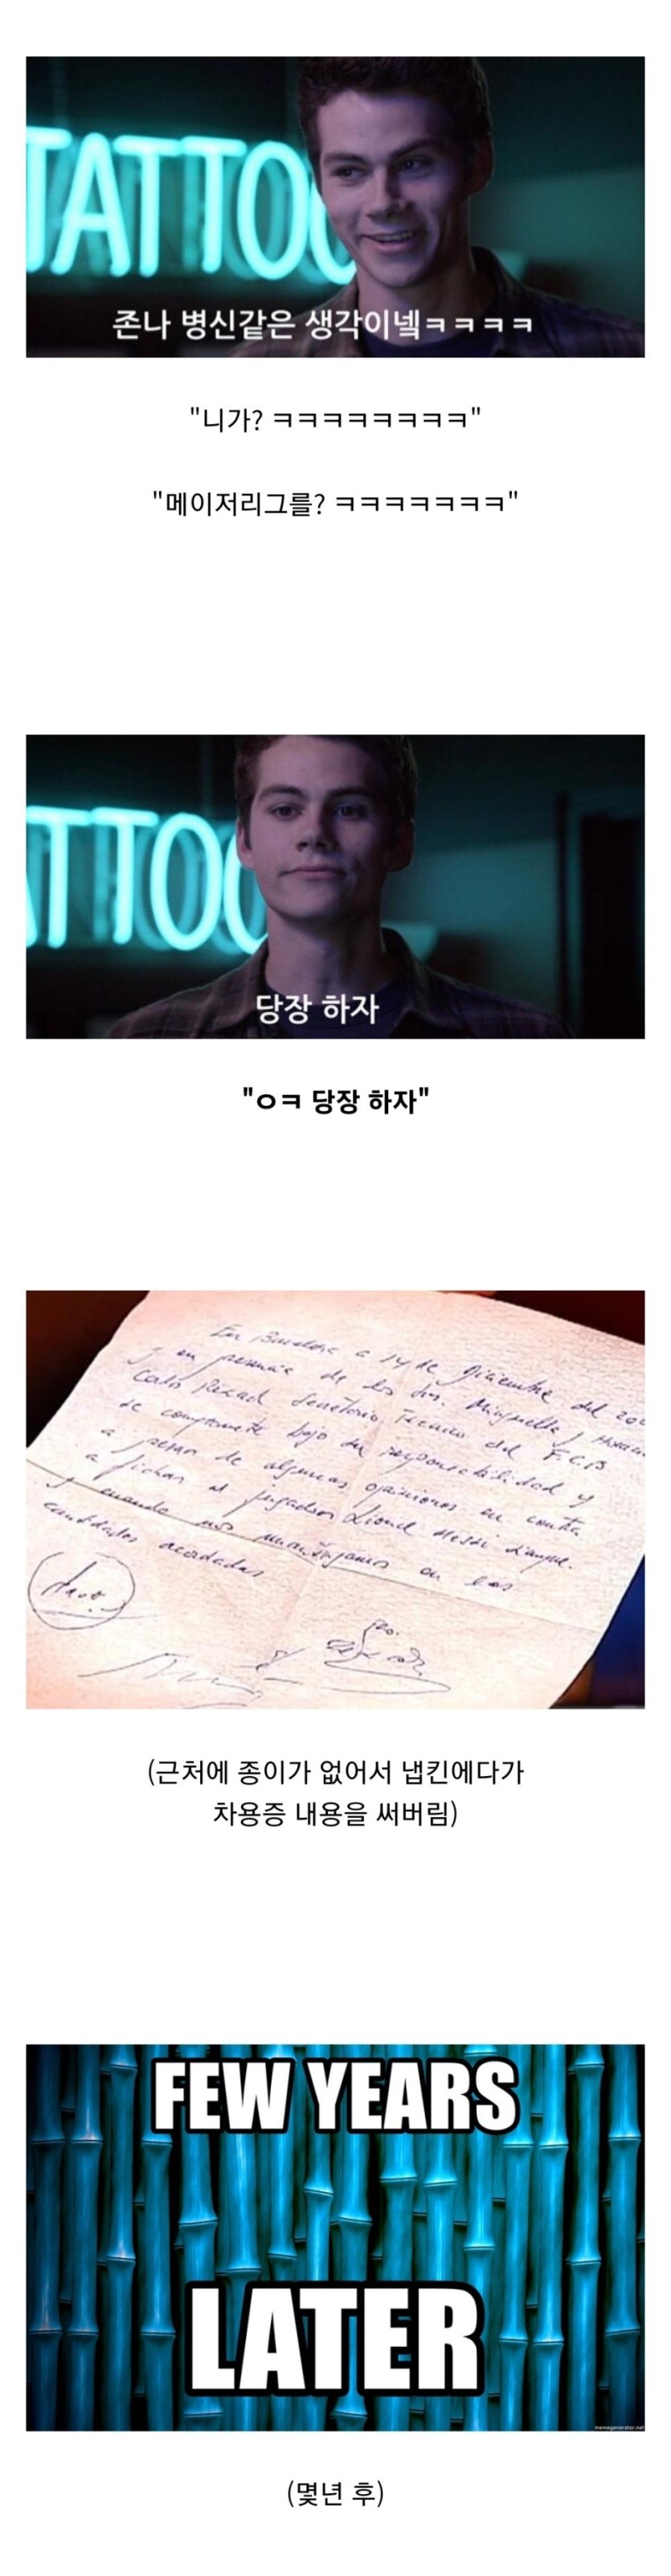 TATTOO
존나 병신같은 생각이넼ㅋㅋㅋㅋ
"니가? ㅋㅋㅋㅋㅋㅋㅋㅋ"
"메이저리그를? ㅋㅋㅋㅋㅋㅋㅋ"
TTOO
당장 하자
"ㅇㅋ 당장 하자"
En Barcelona a 14 de diciembre del 20
y en presencia de los Srs. Minguella y
Carlos Rexach Secretario Técnico del F.C.B
se compromete bajo su responsabilidad y
a pesar de algunas opiniones en contra
a fichar al jugador Lionel Messi
y cuando nos mantengamos en las
cantidades acordadas
(근처에 종이가 없어서 냅킨에다가
차용증 내용을 써버림)
FEW YEARS
LATER
memegenerator.net
(몇년 후)